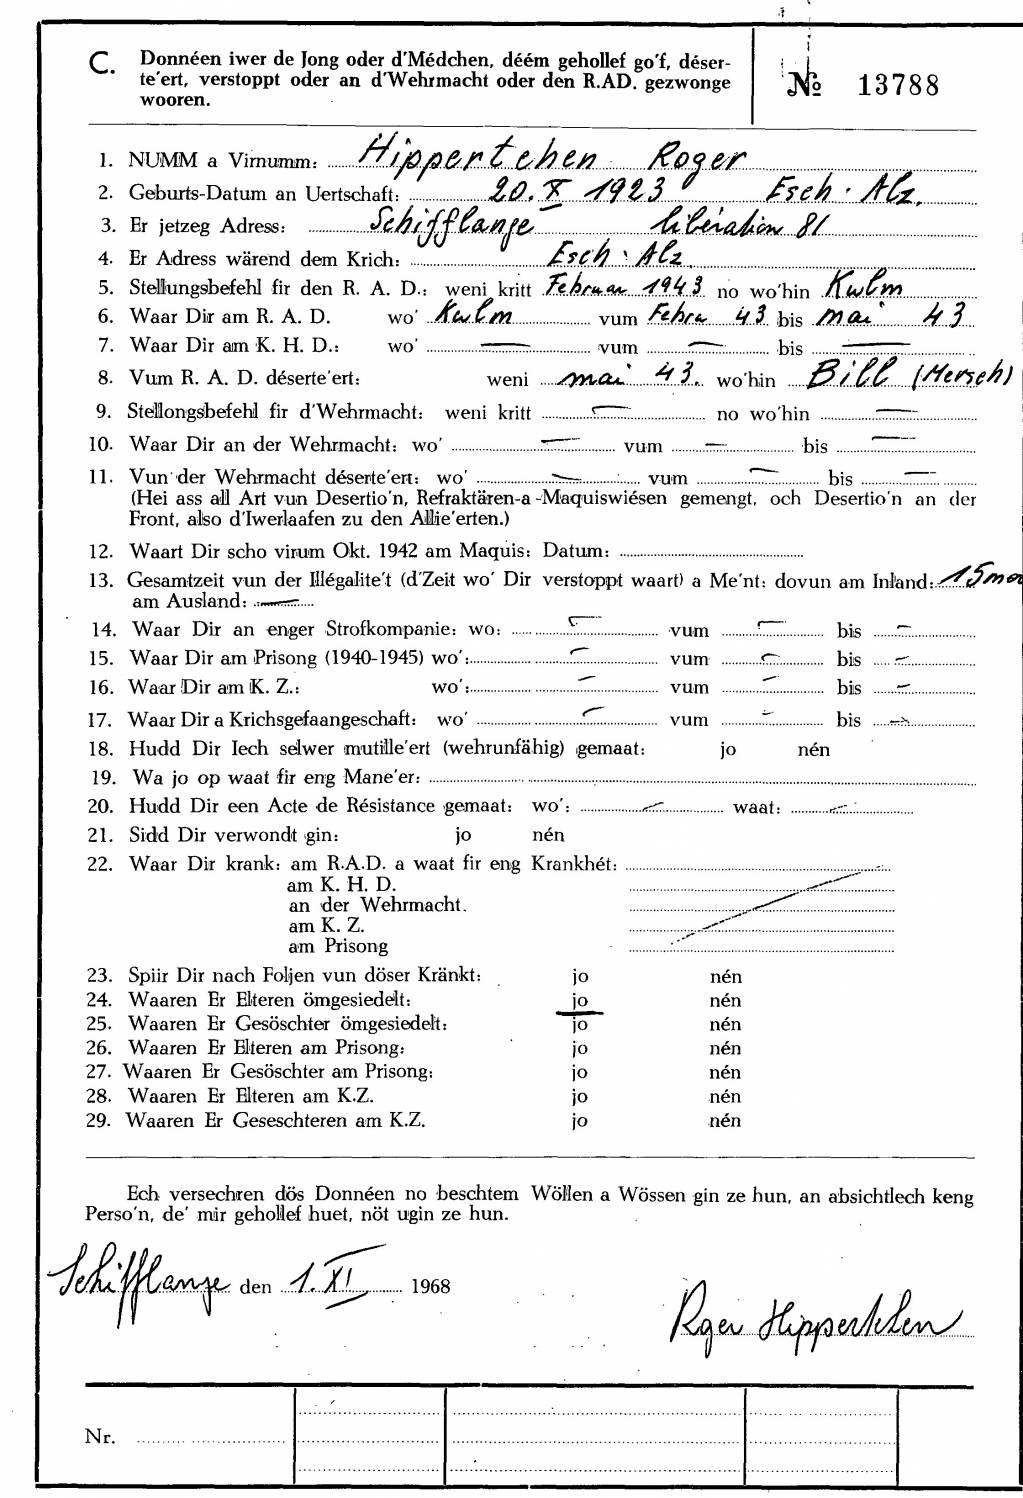 C. Donnéen iwer de Jong oder d'Médchen, déém gehollef go'f, déser-
te'ert, verstoppt oder an d'Wehrmacht oder den R.AD. gezwonge
wooren.
№ 13788
1. NUMM a Virnumm: Hippertchen Roger
2. Geburts-Datum an Uertschaft: 20. X 1923 Esch. Alz.
3. Er jetzeg Adress: Schifflange libération 81
4. Er Adress wärend dem Krich: Esch. Alz
5. Stellungsbefehl fir den R. A. D.: weni kritt Februar 1943 no wo'hin Kulm
6. Waar Dir am R. A. D. wo' Kulm vum Febru 43 bis mai 43
7. Waar Dir am K. H. D.: wo' — vum — bis —
8. Vum R. A. D. déserte'ert: weni mai 43. wo'hin Bill (Mersch)
9. Stellongsbefehl fir d'Wehrmacht: weni kritt — no wo'hin —
10. Waar Dir an der Wehrmacht: wo' — vum — bis —
11. Vun der Wehrmacht déserte'ert: wo' — vum — bis —
(Hei ass all Art vun Desertio'n, Refraktären-a-Maquiswiésen gemengt, och Desertio'n an der
Front, also d'Iwerlaafen zu den Allie'erten.)
12. Waart Dir scho virum Okt. 1942 am Maquis: Datum:
13. Gesamtzeit vun der Illégalite't (d'Zeit wo' Dir verstoppt waart) a Me'nt: dovun am Inland: 15
am Ausland: —
14. Waar Dir an enger Strofkompanie: wo: — vum — bis —
15. Waar Dir am Prisong (1940-1945) wo': — vum — bis —
16. Waar Dir am K. Z.: wo': — vum — bis —
17. Waar Dir a Krichsgefaangeschaft: wo' — vum — bis —
18. Hudd Dir Iech selwer mutille'ert (wehrunfähig) gemaat: jo nén
19. Wa jo op waat fir eng Mane'er:
20. Hudd Dir een Acte de Résistance gemaat: wo': — waat: —
21. Sidd Dir verwondt gin: jo nén
22. Waar Dir krank: am R.A.D. a waat fir eng Krankhét:
am K. H. D.
an der Wehrmacht.
am K. Z.
am Prisong
23. Spiir Dir nach Foljen vun döser Kränkt: jo nén
24. Waaren Er Elteren ömgesiedelt: jo nén
25. Waaren Er Gesöschter ömgesiedelt: jo nén
26. Waaren Er Elteren am Prisong: jo nén
27. Waaren Er Gesöschter am Prisong: jo nén
28. Waaren Er Elteren am K.Z. jo nén
29. Waaren Er Geseschteren am K.Z. jo nén
Ech versechren dös Donnéen no beschtem Wöllen a Wössen gin ze hun, an absichtlech keng
Perso'n, de' mir gehollef huet, nöt ugin ze hun.
Schifflange den 1. XI 1968
Roger Hippertchen
Nr.